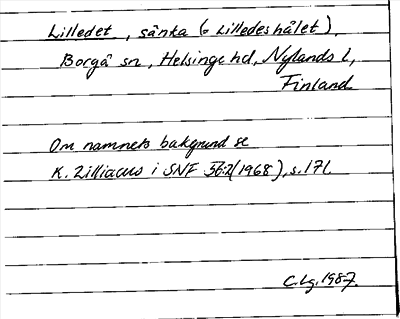 Lilledet, sänka (o Lilledeshålet),
Borgå sn, Helsinge hd, Nylands l,
Finland
Om namnets bakgrund se
K. Zilliacus i SNF 56:2 (1968), s. 171.
C. Lg. 1987.